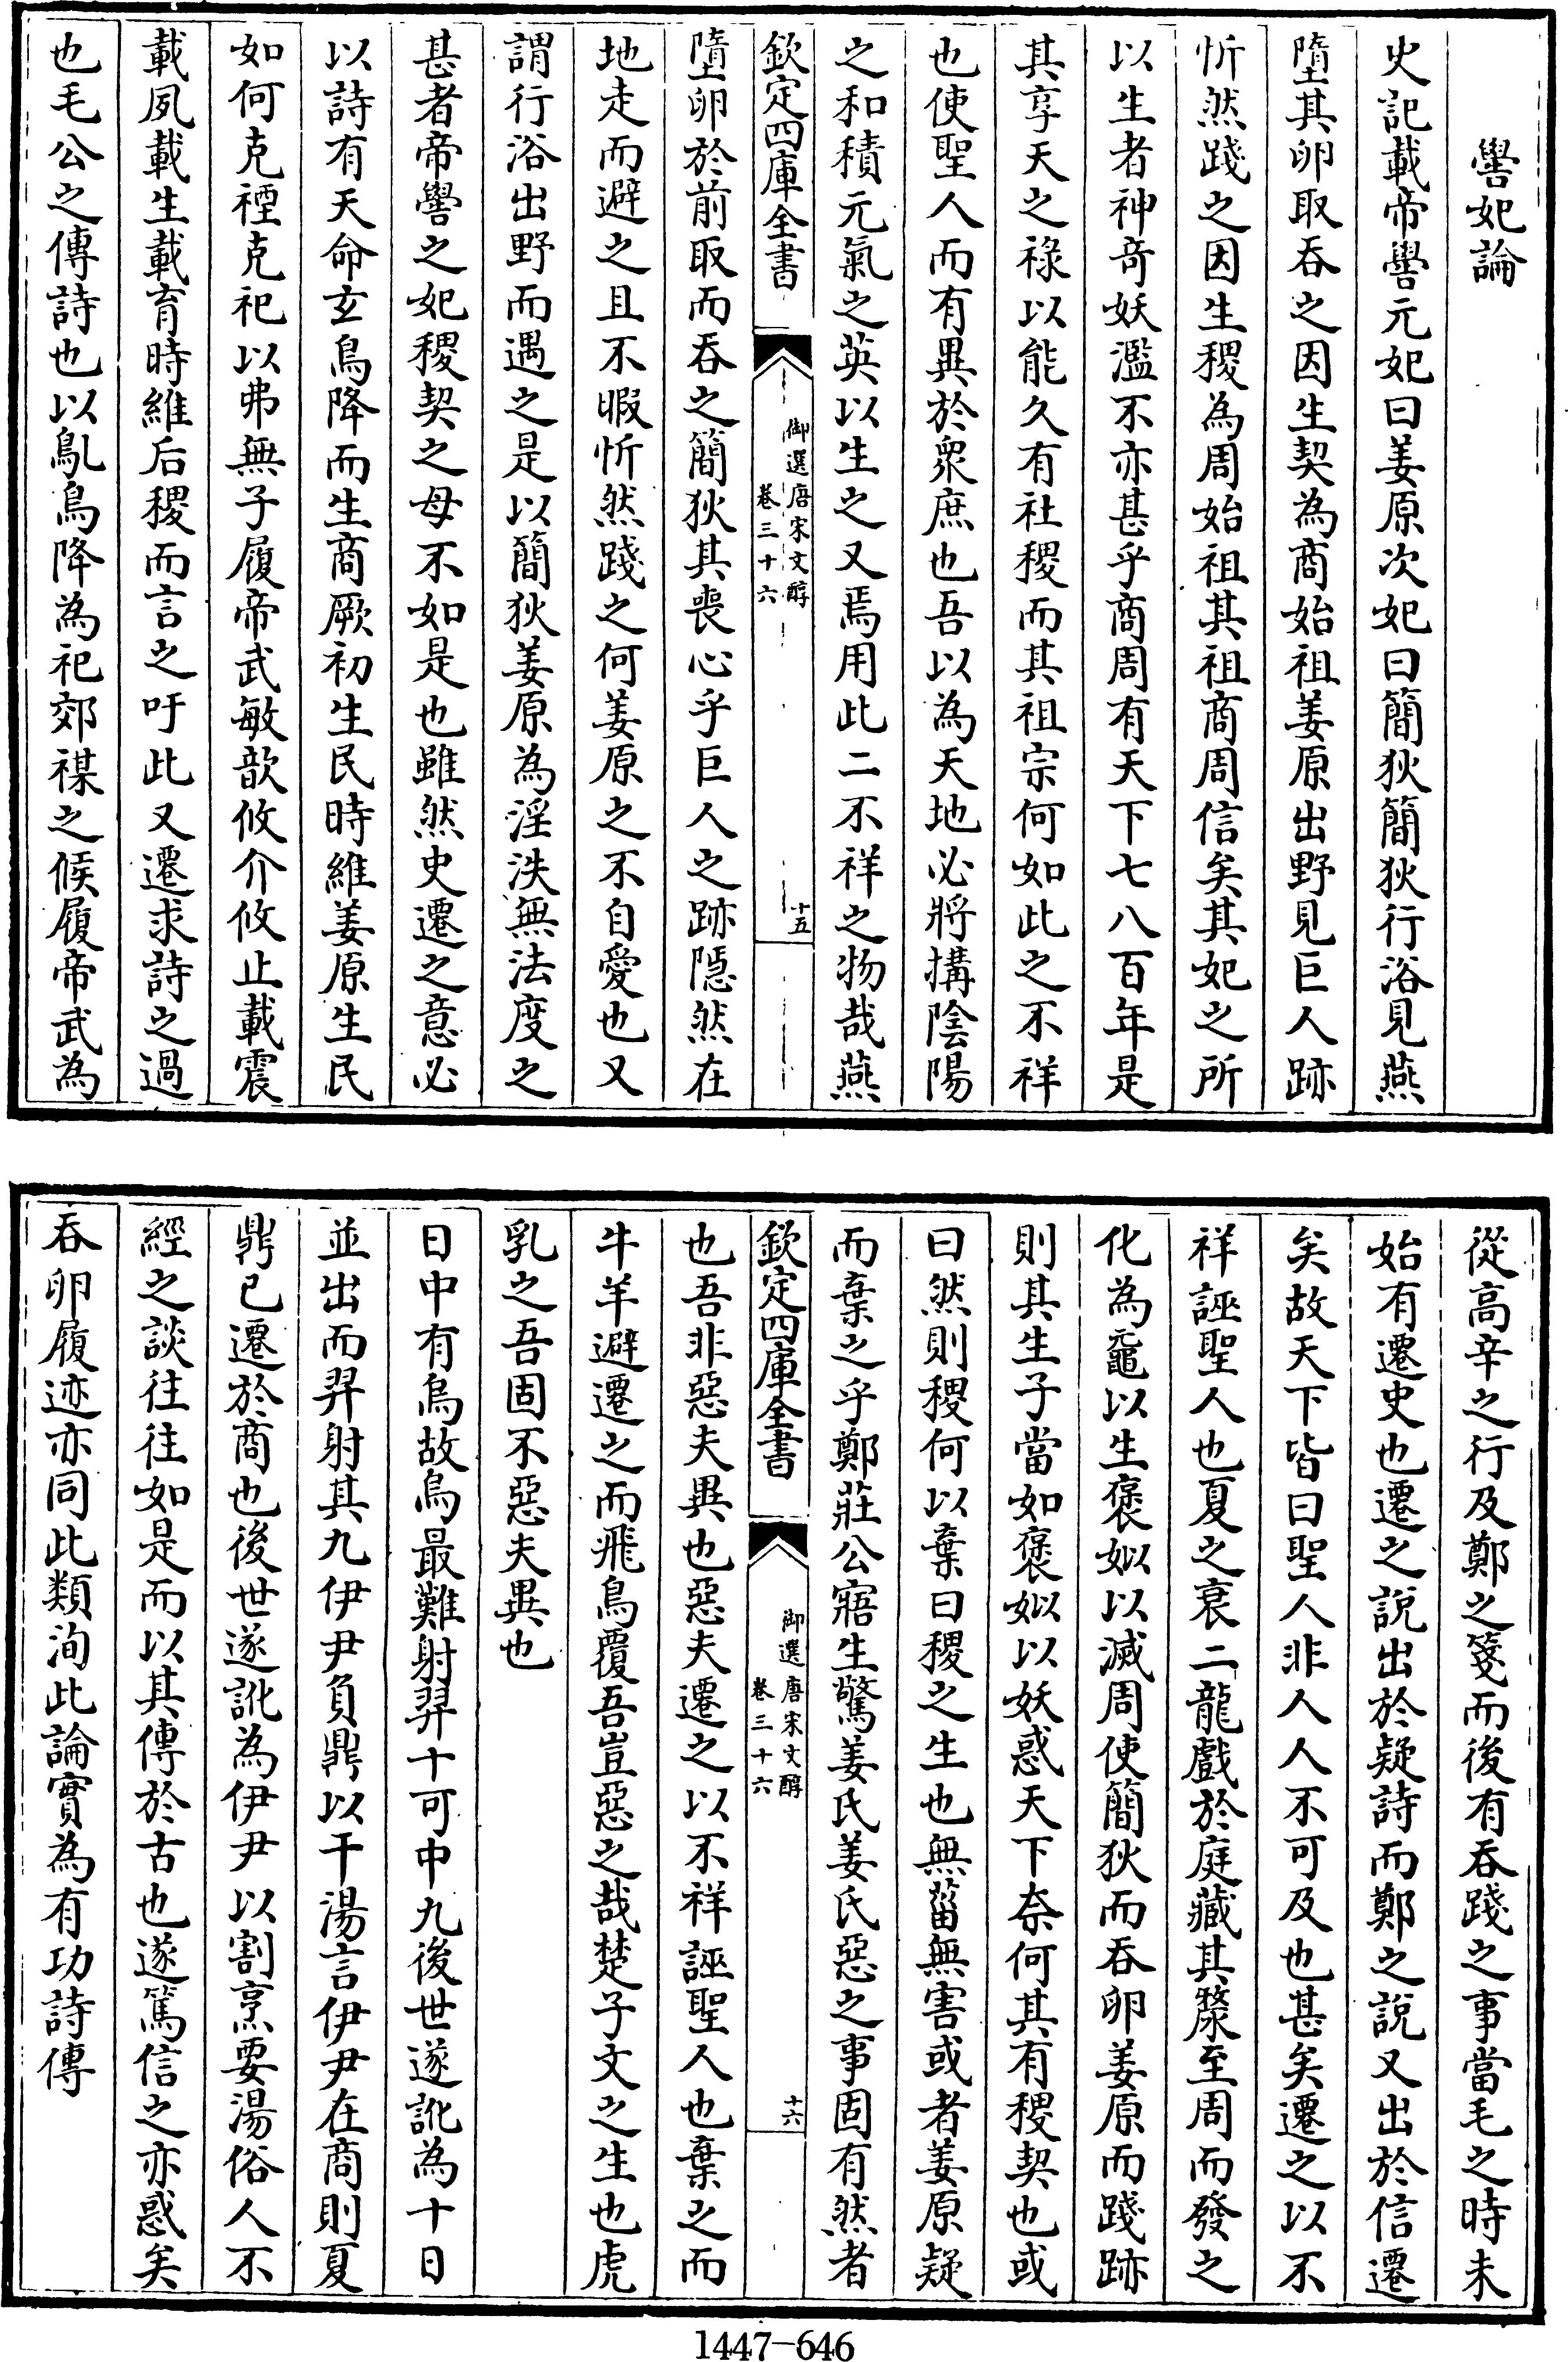 嚳妃論
史記載帝嚳元妃曰姜原次妃曰簡狄簡狄行浴見燕
墮其卵取吞之因生契為商始祖姜原出野見巨人跡
忻然踐之因生稷為周始祖其祖商周信矣其妃之所
以生者神奇妖濫不亦甚乎商周有天下七八百年是
其享天之祿以能久有社稷而其祖宗何如此之不祥
也使聖人而有異於衆庶也吾以為天地必將搆陰陽
之和積元氣之英以生之又焉用此二不祥之物哉燕
欽定四庫全書
御選唐宋文醇
卷三十六
十五
墮卵於前取而吞之簡狄其喪心乎巨人之跡隱然在
地走而避之且不暇忻然踐之何姜原之不自愛也又
謂行浴出野而遇之是以簡狄姜原為淫泆無法度之
甚者帝嚳之妃稷契之母不如是也雖然史遷之意必
以詩有天命玄鳥降而生商厥初生民時維姜原生民
如何克禋克祀以弗無子履帝武敏歆攸介攸止載震
載夙載生載育時維后稷而言之吁此又遷求詩之過
也毛公之傳詩也以鳦鳥降為祀郊禖之候履帝武為
從高辛之行及鄭之箋而後有吞踐之事當毛之時未
始有遷史也遷之說出於疑詩而鄭之說又出於信遷
矣故天下皆曰聖人非人人不可及也甚矣遷之以不
祥誣聖人也夏之衰二龍戲於庭藏其漦至周而發之
化為黿以生褒姒以滅周使簡狄而吞卵姜原而踐跡
則其生子當如褒姒以妖惑天下奈何其有稷契也或
曰然則稷何以棄曰稷之生也無菑無害或者姜原疑
而棄之乎鄭莊公寤生驚姜氏姜氏惡之事固有然者
欽定四庫全書
御選唐宋文醇
卷三十六
十六
也吾非惡夫異也惡夫遷之以不祥誣聖人也棄之而
牛羊避遷之而飛鳥覆吾豈惡之哉楚子文之生也虎
乳之吾固不惡夫異也
日中有烏故烏最難射羿十可中九後世遂訛為十日
並出而羿射其九伊尹負鼎以干湯言伊尹在商則夏
鼎已遷於商也後世遂訛為伊尹以割烹要湯俗人不
經之談往往如是而以其傳於古也遂篤信之亦惑矣
吞卵履迹亦同此類洵此論實為有功詩傳
1447-646